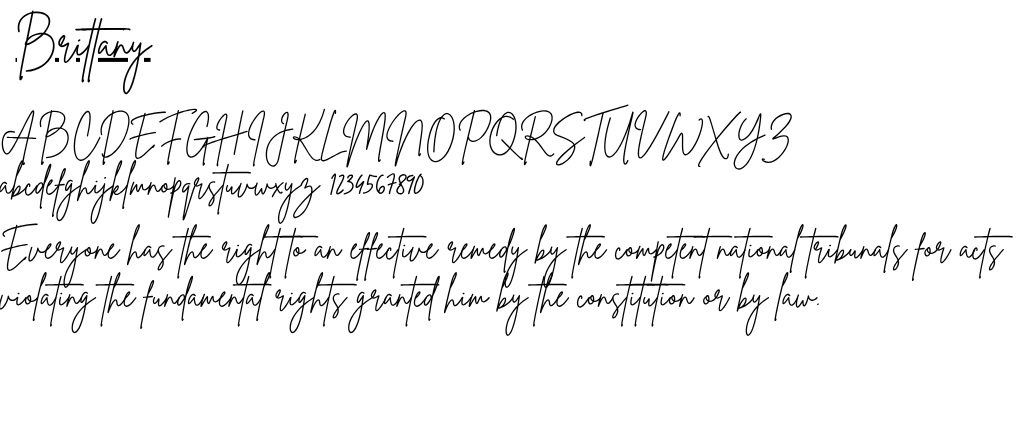 Brittany
ABCDEFGHIJKLMNOPQRSTUVWXYZ
abcdefghijklmnopqrstuvwxyz 1234567890
Everyone has the right to an effective remedy by the competent national tribunals for acts
violating the fundamental rights granted him by the constitution or by law.